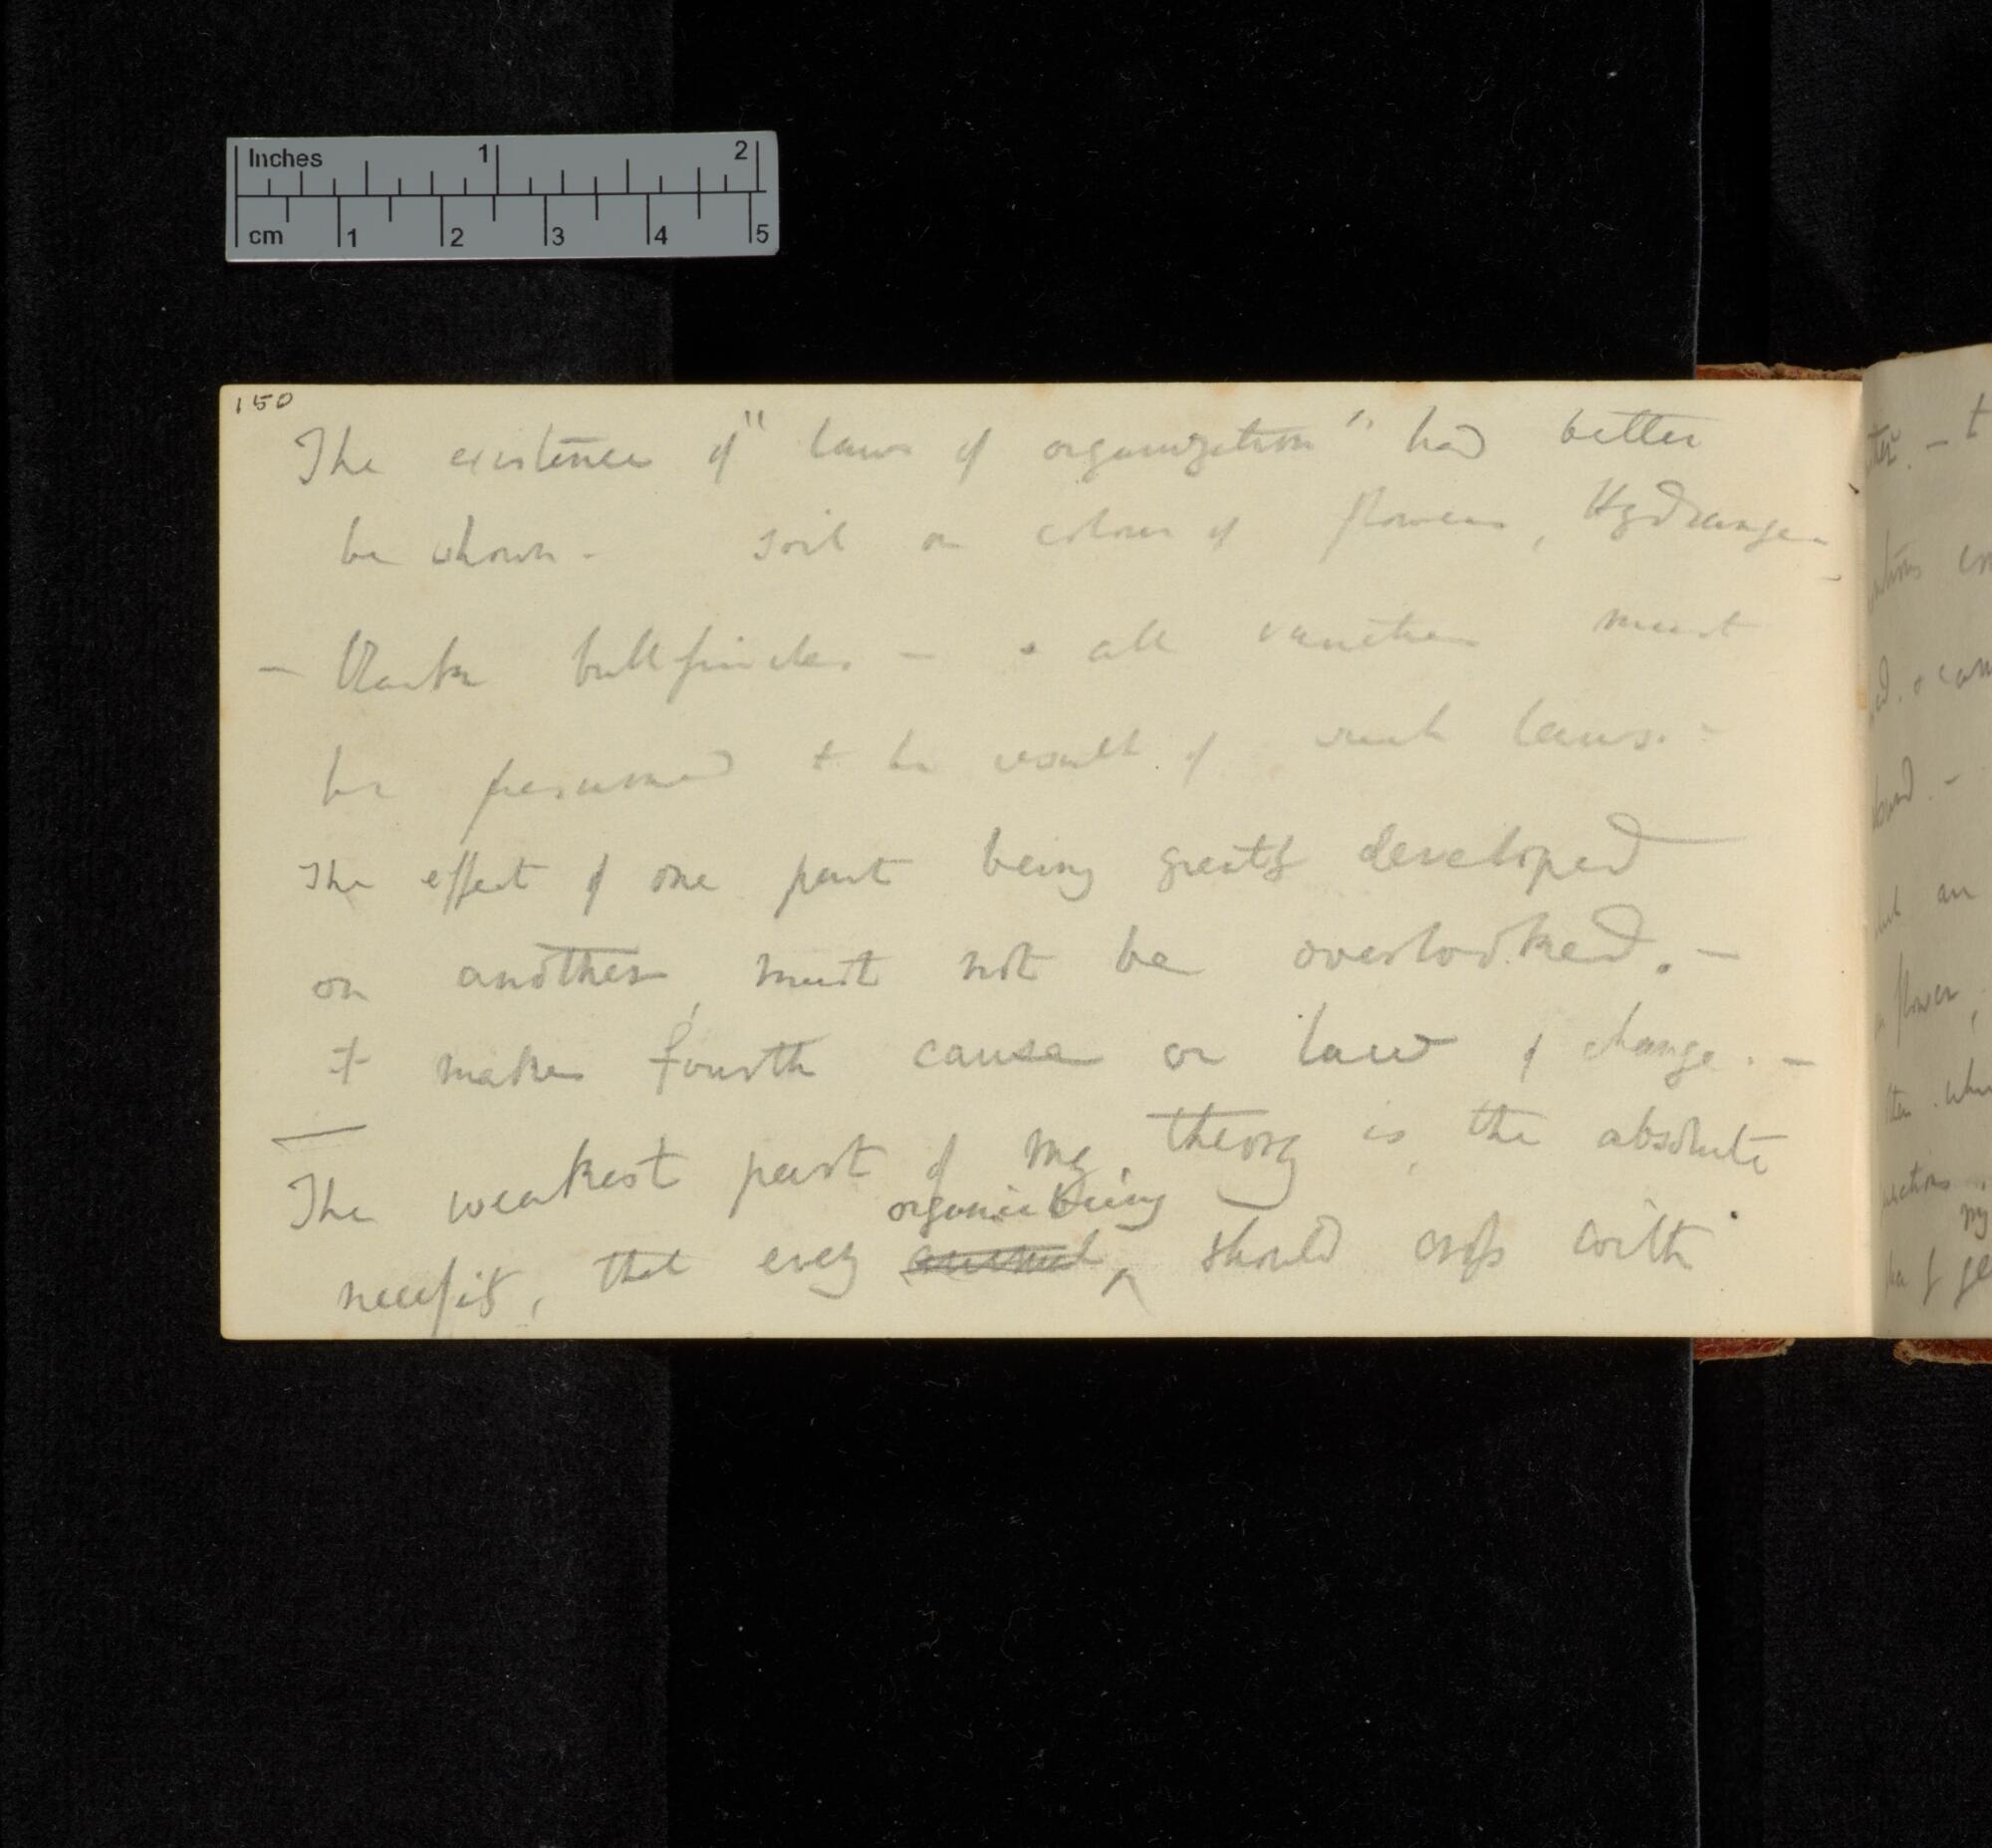 Inches 1 2
cm 1 2 3 4 5
150
The existence of "laws of organization" had better
be shown – soil on colour of flowers, Hydrangea
– Black bullfinches – & all varieties must
be presumed to be result of such laws. –
The effect of one part being greatly developed
on another must not be overlooked. –
it makes fourth cause or law of change. –
The weakest part of my theory is, the absolute
organic being
necessity, that every animal should cross with